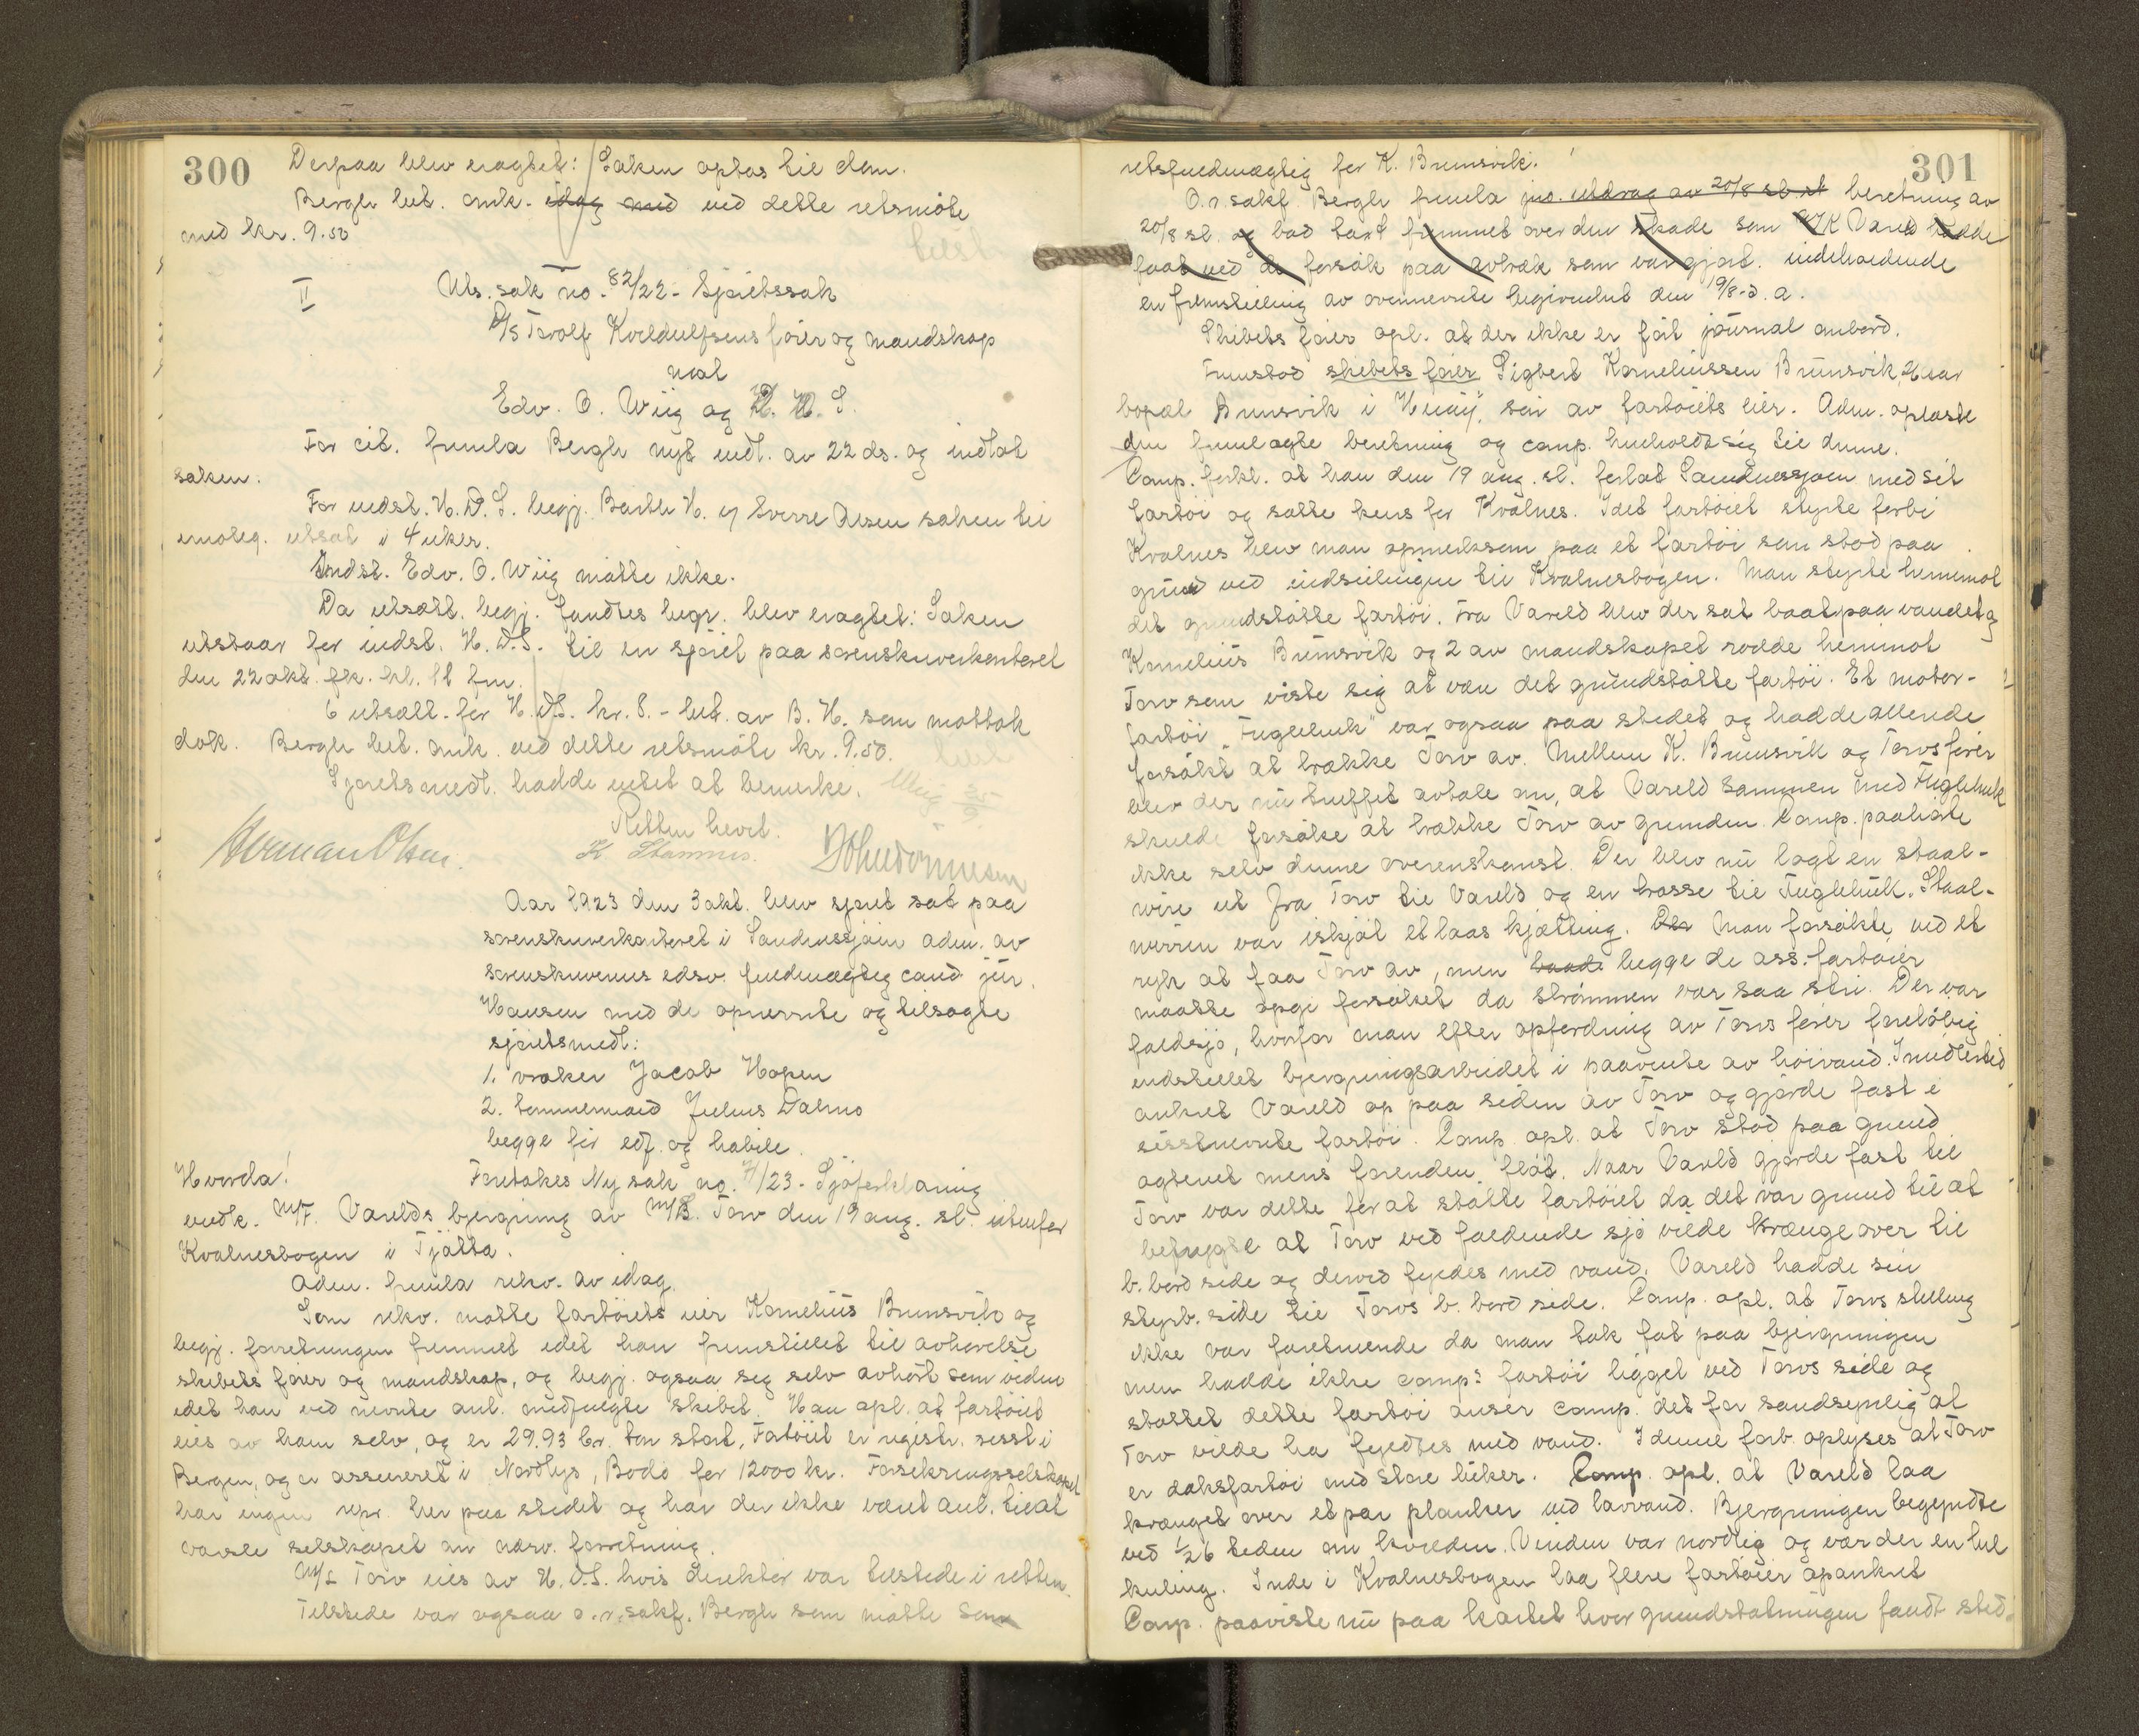 300
Derpaa blev eragtet: Saken optas til dom.
Bergh bet. omk. idag med ved dette retsmöte
med kr. 9.50
II
Uts. sak no. 82/22 - Sjöretssak
D/S Torolf Kveldulfsens förer og mandskap
mot
Edv. O. Wiig og H. D. S.
For cit. fremla Bergh nyt indl. av 22 ds. og indlot
saken.
For indst. H. D. S. begj. Bartle H. og Sverre Olsen saken til
imöteg. utsat i 4 uker.
Indst. Edv. O. Wiig mötte ikke.
Da utsætt. begj. fandtes begr. blev eragtet: Saken
utstaar for indst. H. D. S. til en sjöret paa sorenskriverkontoret
den 22 okt. fk. kl. 11 fm.
6 utsætt. for H. D. S. kr. 8.- bet. av B. H. som mottok
dok. Bergh bet. omk. ved dette retsmöte kr. 9.50.
Sjöretsmedl. hadde intet at bemerke.
Retten hevet.
Herman Olsen.
Aar 1923 den 3 okt. blev sjöret sat paa
sorenskriverkontoret i Sandnessjöen adm. av
sorenskriverens edsv. fuldmægtig cand. jur.
Hansen med de opnevnte og tilsagte
sjöretsmedl:
1. vraker Jacob Hopen
2. tömmermand Julius Dalmo
begge för edf. og habile.
Hvorda!
Foretokes Ny sak no. 7/23 - Sjöforklaring
vedk. M/K. Varelds bjergning av M/S. Torv den 19 aug. sl. utenfor
Kvalnesbogen i Tjötta.
Adm. fremla rekv. av idag.
Som rekv. mötte fartöiets eier Kornelius Brunsvik og
begj. forretningen fremmet idet han fremstillet til avhörelse
skibets förer og mandskap, og begj. ogsaa sig selv avhört som vidne
idet han ved nevnte anl. medfulgte skibet. Han opl. at fartöiet
eies av ham selv, og er 29.93 br. ton stort. Fartöiet er registr. sisst i
Bergen, og er assureret i Nordlys, Bodö for 12000 kr. Forsikringsselskapet
har ingen repr. her paa stedet og har der ikke været anl. til at
varsle selskapet om nærv. forretning.
M/S Torv eies av H. D. S. hvis direktör var tilstede i retten.
Tilstede var ogsaa o.r.sakf. Bergh som mötte som
301
retsfuldmægtig for K. Brunsvik.
O.r.sakf. Bergh fremla jno. utdrag av 20/8 sl. beretning av
20/8 sl. og bad taxt fremmet over den skade som M/K Vareld hadde
faat ved de forsök paa avtræk som var gjort. indeholdende
en fremstilling av ovennevnte begivenhet den 19/8 d. a.
Skibets förer opl. at der ikke er fört journal ombord.
Fremstod skibets förer Sigbert Korneliussen Brunsvik, aar
bopæl Brunsvik i Heröy, sön av fartöiets eier. Adm. oplæste
den fremlagte beretning og comp. henholdt sig til denne.
Comp. forkl. at han den 19 aug. sl. forlot Sandnessjöen med sit
fartöi og satte kurs for Kvalnes. Idet fartöiet styrte forbi
Kvalnes blev man opmerksom paa et fartöi som stod paa
grund ved indseilingen til Kvalnesbogen. Man styrte henimot
det grundstötte fartöi. Fra Vareld blev der sat baat paa vandet og
Kornelius Brunsvik og 2 av mandskapet rodde henimot
Torv som viste sig at være det grundstötte fartöi. Et motor-
fartöi "Fuglehuk" var ogsaa paa stedet og hadde allerede
forsökt at trække Torv av. Mellem K. Brunsvik og Torvs förer
blev der nu truffet avtale om, at Vareld sammen med Fuglehuk
skulde forsöke at trække Torv av grunden. Comp. paahörte
ikke selv denne overenskomst. Der blev nu lagt en staal-
wire ut fra Torv til Vareld og en trosse til Fuglehuk. Staal-
wiren var iskjöt et laas kjætting. Man forsökte ved et
ryk at faa Torv av, men baade begge de ass. fartöier
maatte opgi forsöket da strömmen var saa stri. Der var
faldsjö, hvorfor man efter opfordring av Torvs förer forelöbig
indstillet bjergningsarbeidet i paavente av höivand. Imidlertid
ankret Vareld op paa siden av Torv og gjorde fast i
sisstnevnte fartöi. Comp. opl. at Torv stod paa grund
agterut mens forenden flöt. Naar Vareld gjorde fast til
Torv var dette for at stötte fartöiet da det var grund til at
befrygte at Torv ved faldende sjö vilde krænge over til
b. bord side og derved fyldes med vand. Vareld hadde sin
styrb. side til Torvs b. bord side. Comp. opl. at Torvs stilling
ikke var foretruende da man tok fat paa bjergningen
men hadde ikke comps fartöi ligget ved Torvs side og
stöttet dette fartöi anser comp. det for sandsynlig at
Torv vilde ha fyldtes med vand. I denne forb. oplyses at Torv
er dæksfartöi med store luker. Comp. opl. at Vareld laa
krænget over et par planker ved lavvand. Bjergningen begyndte
ved 1/2 6 tiden om kvelden. Vinden var nordlig og var der en lul
kuling. Inde i Kvalnesbogen laa flere fartöier opankret
Comp. paaviste nu paa kartet hvor grundstötningen fandt sted.